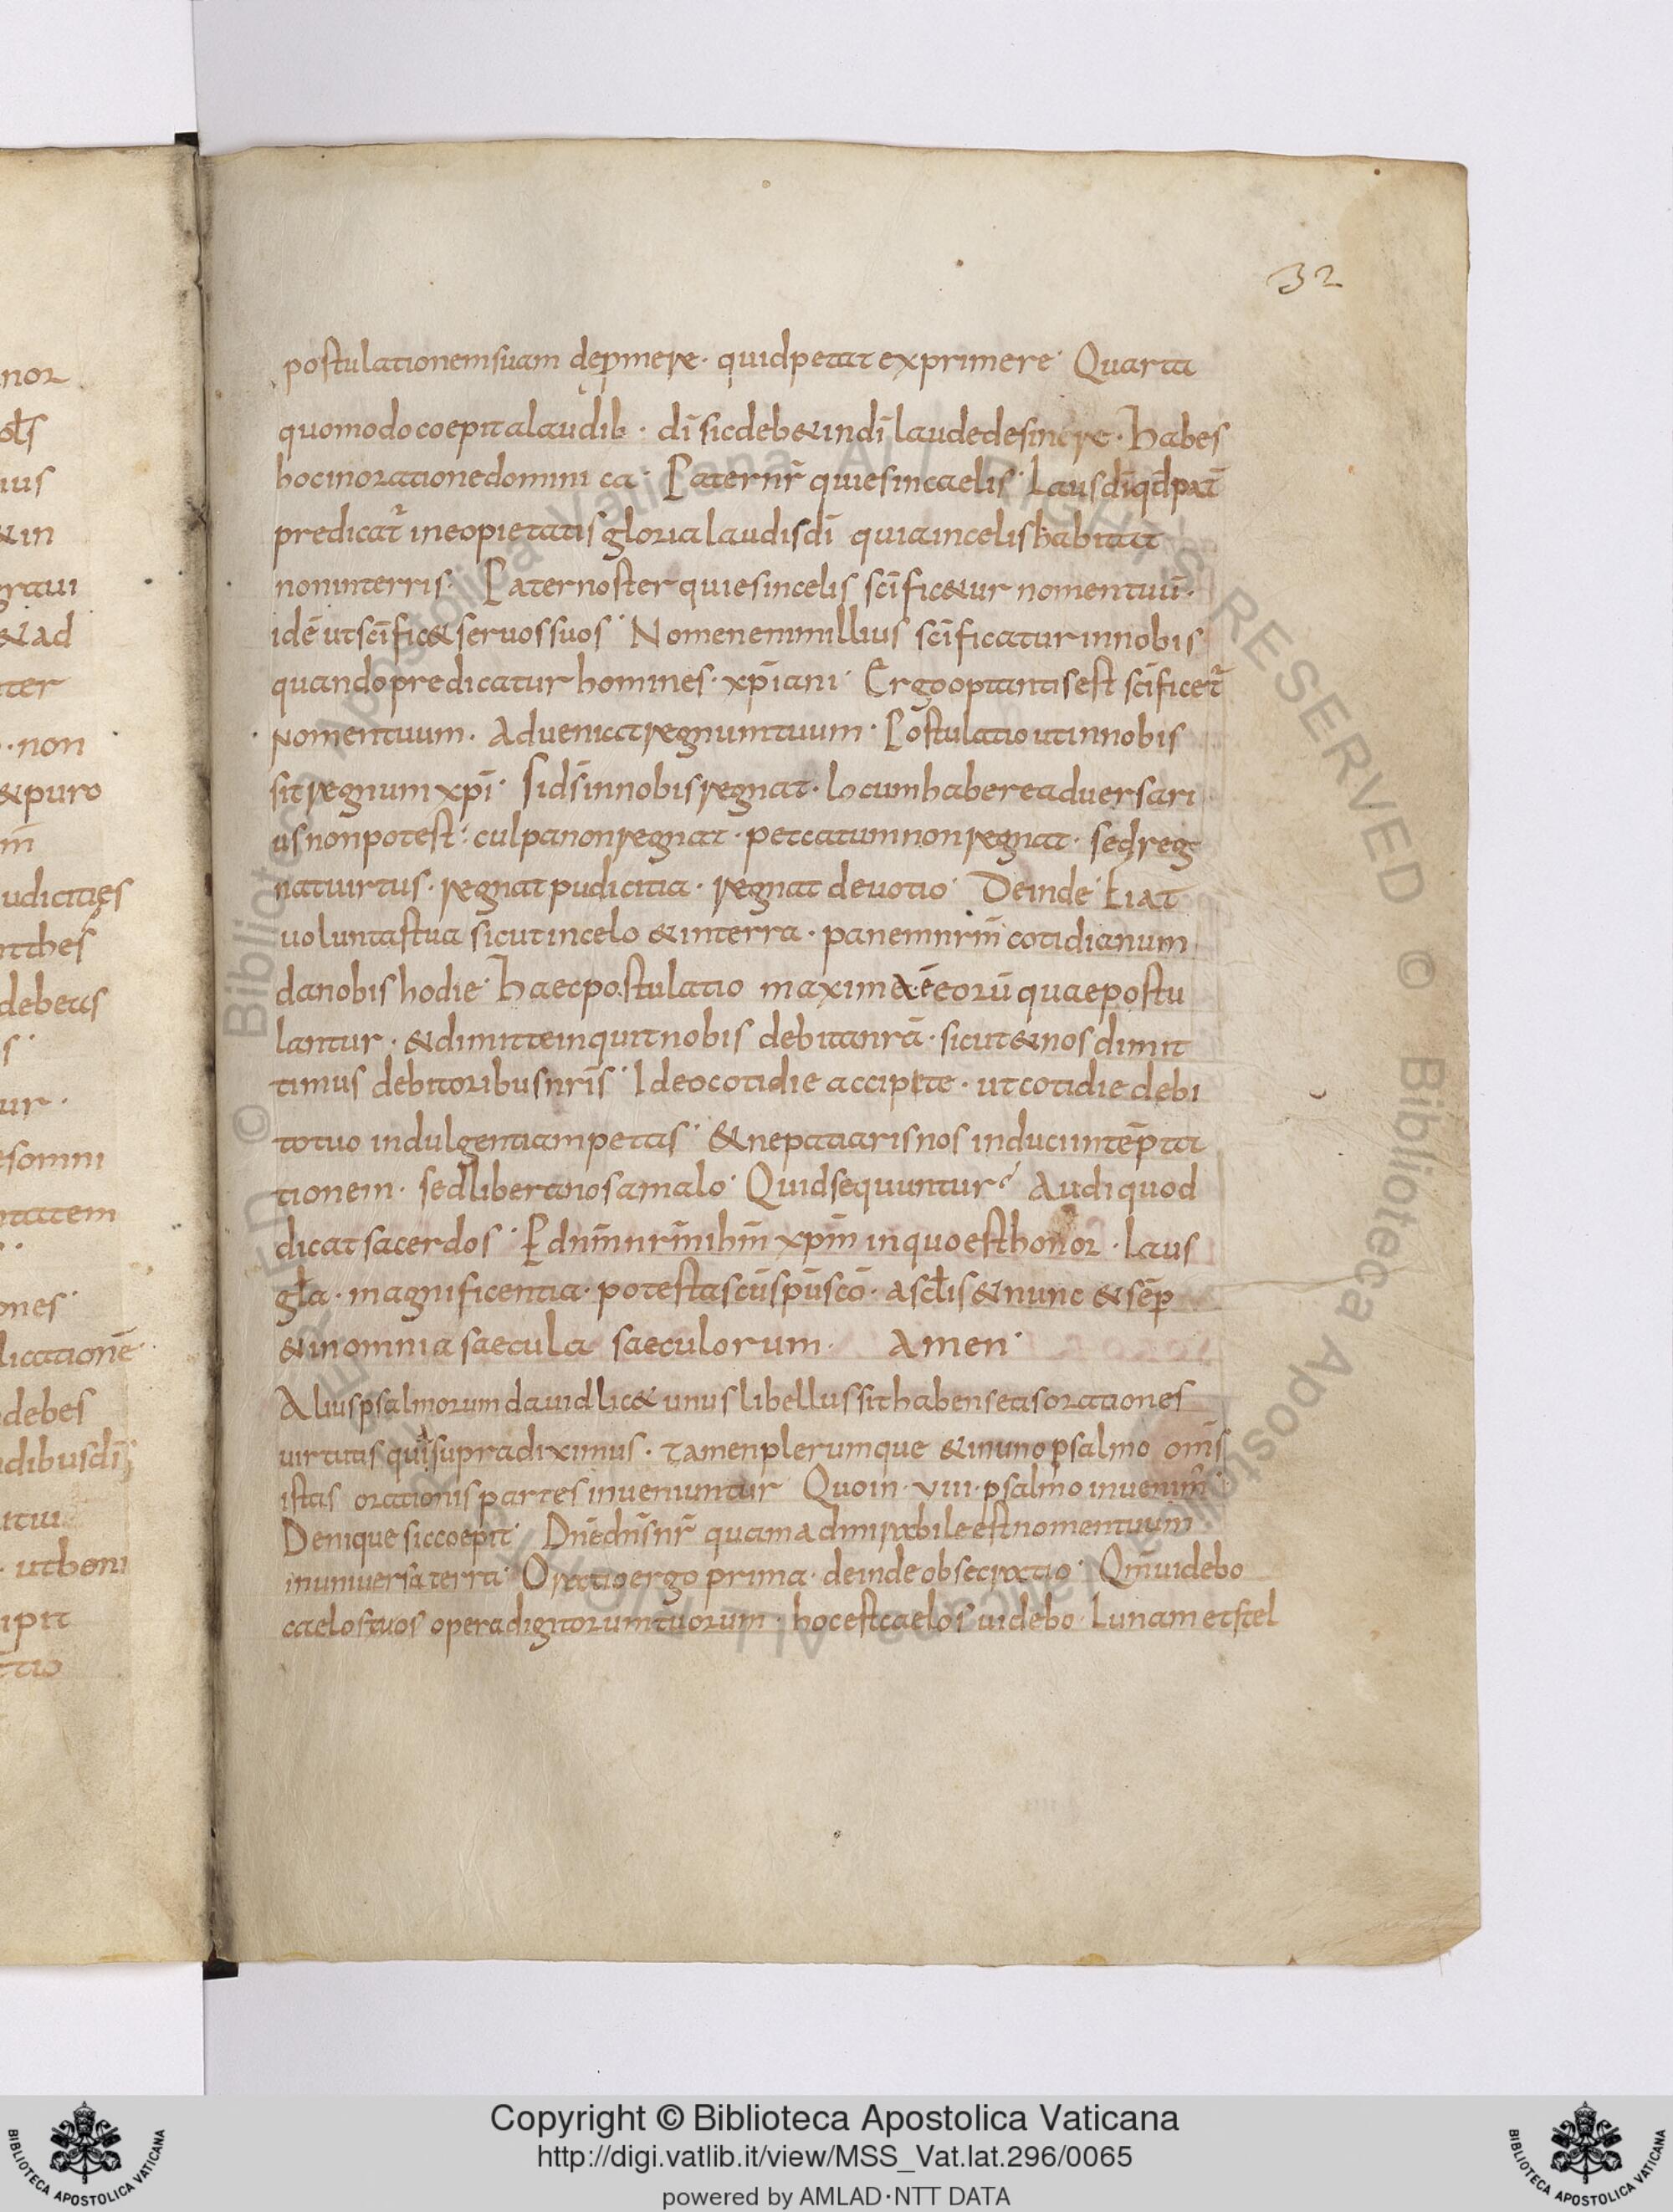 32
postulationem suam depmere · quid petat exprimere · Quarta
quomodo coepit a laudib · dī sic deb& in dī laude desinere · habes
hoc in oratione domini ca · Pater nr̄ qui es in caelis · Laus dī qd̄ pat̄
predicat̄ in eo pietatis gloria laudis dī quia in celis habitat
non in terris · Pater noster qui es in celis sc̄ific&ur nomen tuū ·
idē ut sc̄ific& seruos suos · Nomen enim illius sc̄ificatur in nobis
quando predicatur homines · xp̄iani · Ergo optantis est sc̄ificet̄
nomen tuum · Adueniat regnum tuum · Postulatio ut in nobis
sit regnum xp̄i · Si ds̄ in nobis regnat · Locum habere aduersari
us non potest : culpa non regnat · peccatum non regnat · sed reg
nat uirtus · regnat pudicitia · regnat deuotio · Deinde · Fiat
uoluntas tua sicut in celo & in terra · panem nrm̄ cotidianum
da nobis hodie · Haec postulatio maxima ē eorū quae postu
lantur · & dimitte inquit nobis debita nrā · sicut & nos dimit
timus debitoribus nrīs · Ideo cotidie accipite · ut cotidie debi
to tuo indulgentiam petas · & ne patiaris nos induci in tēptati
tionem · sed libera nos a malo · Quid sequuntur? Audi quod
dicat sacerdos · P dnm̄ nrm̄ ihm̄ xpm̄ in quo est honor · laus
gl̄a · magnificentia · potestas cū sp̄u sc̄o · a scl̄is & nunc & sēp
& in omnia saecula saeculorum · Amen ·
Alius psalmorum dauid lic& unus libellus sit habens eas orationes
uirtutis quas supra diximus · tamen plerumque & in uno psalmo omīs
istas orationis partes inueniuntur Quo in · VIII · psalmo inuenim̄ ·
Denique sic coepit · Dnē dns̄ nr̄ quam admirabile est nomen tuum
in uniuersa terra · Oratio ergo prima · deinde obsecratio · Qm̄ uidebo
caelos tuos opera digitorum tuorum · hoc est caelos uidebo · Lunam et stel
nor
ius
& in
& ad
ter
· non
& puro
debeas
ur ·
somni
ones ·
licationē
debes
dibus dī
itui
· ut boni
ipit
tio
BIBLIOTECA APOSTOLICA VATICANA
Copyright © Biblioteca Apostolica Vaticana
http://digi.vatlib.it/view/MSS_Vat.lat.296/0065
powered by AMLAD·NTT DATA
BIBLIOTECA APOSTOLICA VATICANA